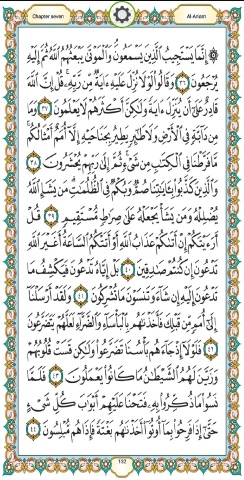 Chapter seven
Al-Anam
۞ إِنَّمَا يَسْتَجِيبُ الَّذِينَ يَسْمَعُونَ وَالْمَوْتَىٰ يَبْعَثُهُمُ اللَّهُ ثُمَّ إِلَيْهِ
يُرْجَعُونَ ٣٦ وَقَالُوا لَوْلَا نُزِّلَ عَلَيْهِ ءَايَةٌ مِّن رَّبِّهِ ۚ قُلْ إِنَّ اللَّهَ
قَادِرٌ عَلَىٰ أَن يُنَزِّلَ ءَايَةً وَلَٰكِنَّ أَكْثَرَهُمْ لَا يَعْلَمُونَ ٣٧ وَمَا
مِن دَابَّةٍ فِي الْأَرْضِ وَلَا طَائِرٍ يَطِيرُ بِجَنَاحَيْهِ إِلَّا أُمَمٌ أَمْثَالُكُم
مَّا فَرَّطْنَا فِي الْكِتَابِ مِن شَيْءٍ ثُمَّ إِلَىٰ رَبِّهِمْ يُحْشَرُونَ ٣٨
وَالَّذِينَ كَذَّبُوا بِـَٔايَاتِنَا صُمٌّ وَبُكْمٌ فِي الظُّلُمَاتِ مَن يَشَإِ اللَّهُ
يُضْلِلْهُ وَمَن يَشَأْ يَجْعَلْهُ عَلَىٰ صِرَاطٍ مُّسْتَقِيمٍ ٣٩ قُلْ
أَرَءَيْتَكُمْ إِنْ أَتَاكُمْ عَذَابُ اللَّهِ أَوْ أَتَتْكُمُ السَّاعَةُ أَغَيْرَ اللَّهِ
تَدْعُونَ إِن كُنتُمْ صَادِقِينَ ٤٠ بَلْ إِيَّاهُ تَدْعُونَ فَيَكْشِفُ مَا
تَدْعُونَ إِلَيْهِ إِن شَاءَ وَتَنسَوْنَ مَا تُشْرِكُونَ ٤١ وَلَقَدْ أَرْسَلْنَا
إِلَىٰ أُمَمٍ مِّن قَبْلِكَ فَأَخَذْنَاهُم بِالْبَأْسَاءِ وَالضَّرَّاءِ لَعَلَّهُمْ يَتَضَرَّعُونَ
٤٢ فَلَوْلَا إِذْ جَاءَهُم بَأْسُنَا تَضَرَّعُوا وَلَٰكِن قَسَتْ قُلُوبُهُمْ
وَزَيَّنَ لَهُمُ الشَّيْطَانُ مَا كَانُوا يَعْمَلُونَ ٤٣ فَلَمَّا
نَسُوا مَا ذُكِّرُوا بِهِ فَتَحْنَا عَلَيْهِمْ أَبْوَابَ كُلِّ شَيْءٍ
حَتَّىٰ إِذَا فَرِحُوا بِمَا أُوتُوا أَخَذْنَاهُم بَغْتَةً فَإِذَا هُم مُّبْلِسُونَ ٤٤
132